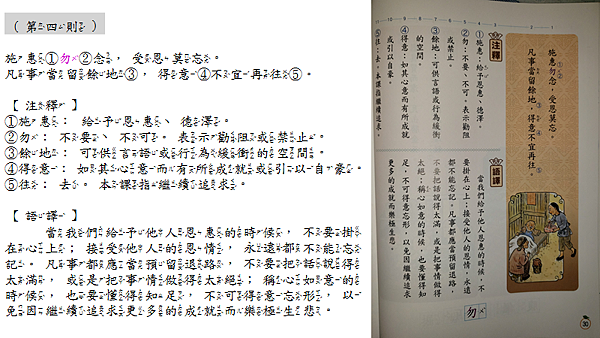 (第四則)
施惠①勿②念，受恩莫忘。
凡事當留餘地③，得意④不宜再往⑤。
【注釋】
①施惠：給予恩惠、德澤。
②勿：不要、不可。表示勸阻或禁止。
③餘地：可供言語或行為緩衝的空間。
④得意：如其心意而有所成就或引以自豪。
⑤往：去。本課指繼續追求。
【語譯】
當我們給予他人恩惠的時候，不要掛
在心上；接受他人的恩情，永遠都不能忘
記。凡事都應當預留退路，不要把話說得
太滿，或是把事情做得太絕；稱心如意的
時候，也要懂得知足，不可得意忘形，以
免因繼續追求更多的成就而樂極生悲。
施惠①勿②念，受恩莫忘。
凡事當留餘地③，得意④不宜再往⑤。
注釋
①施惠：給予恩惠、德澤。
②勿：不要、不可。表示勸阻
或禁止。
③餘地：可供言語或行為緩衝
的空間。
④得意：如其心意而有所成就
或引以自豪。
⑤往：去。本課指繼續追求。
語譯
當我們給予他人恩惠的時候，不
要掛在心上；接受他人的恩情，永遠
都不能忘記。凡事都應當預留退路，
不要把話說得太滿，或是把事情做得
太絕；稱心如意的時候，也要懂得知
足，不可得意忘形，以免因繼續追求
更多的成就而樂極生悲。
勿
30